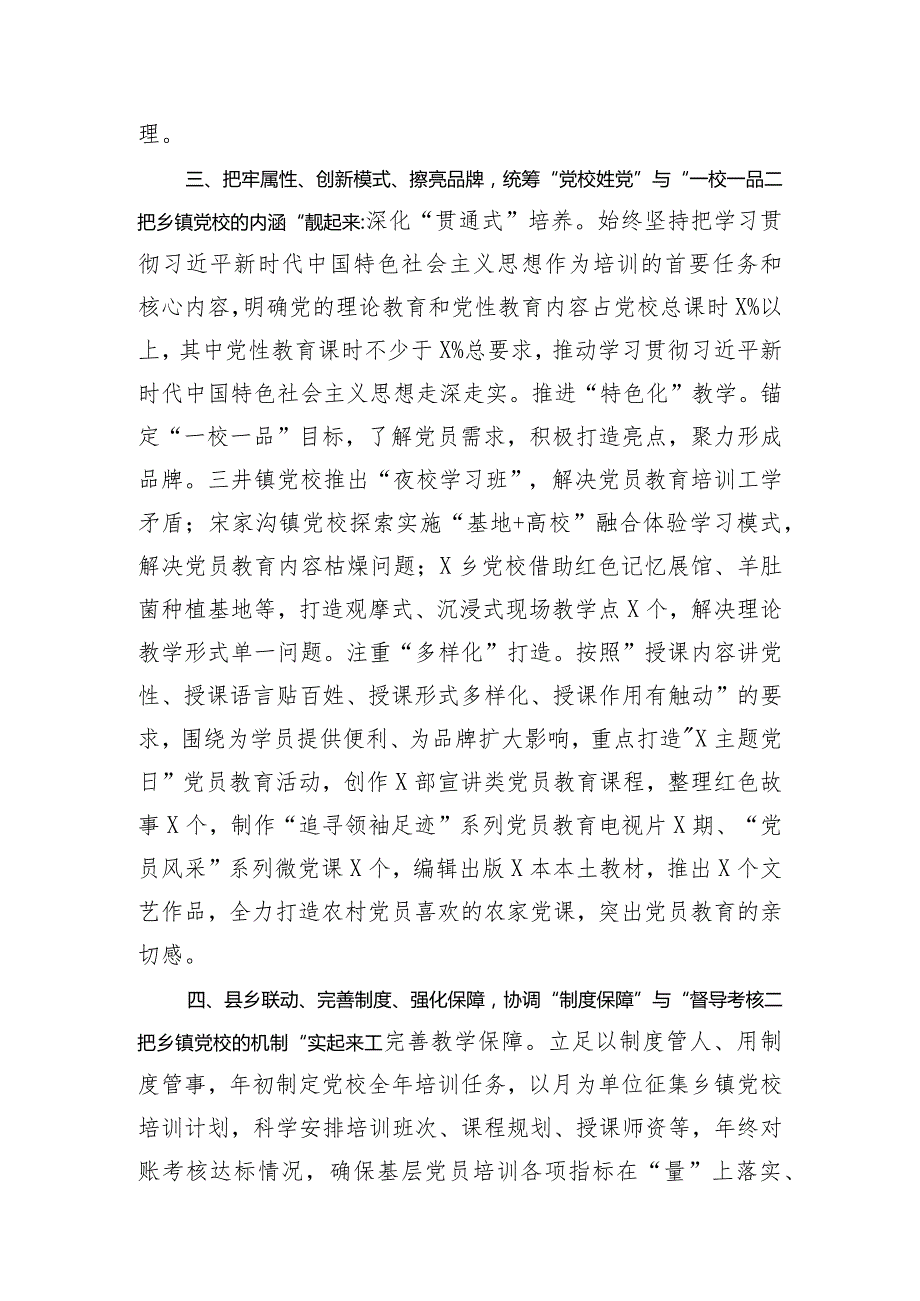 理。
三、把牢属性、创新模式、擦亮品牌，统筹“党校姓党”与“一校一品二
把乡镇党校的内涵“靓起来:深化“贯通式”培养。始终坚持把学习贯
彻习近平新时代中国特色社会主义思想作为培训的首要任务和
核心内容，明确党的理论教育和党性教育内容占党校总课时X%以
上，其中党性教育课时不少于X%总要求，推动学习贯彻习近平新
时代中国特色社会主义思想走深走实。推进“特色化”教学。锚
定“一校一品”目标，了解党员需求，积极打造亮点，聚力形成
品牌。三井镇党校推出“夜校学习班”，解决党员教育培训工学
矛盾；宋家沟镇党校探索实施“基地+高校”融合体验学习模式，
解决党员教育内容枯燥问题；X乡党校借助红色记忆展馆、羊肚
菌种植基地等，打造观摩式、沉浸式现场教学点X个，解决理论
教学形式单一问题。注重“多样化”打造。按照”授课内容讲党
性、授课语言贴百姓、授课形式多样化、授课作用有触动”的要
求，围绕为学员提供便利、为品牌扩大影响，重点打造"X主题党
日”党员教育活动，创作X部宣讲类党员教育课程，整理红色故
事X个，制作“追寻领袖足迹”系列党员教育电视片X期、“党
员风采”系列微党课X个，编辑出版X本本土教材，推出X个文
艺作品，全力打造农村党员喜欢的农家党课，突出党员教育的亲
切感。
四、县乡联动、完善制度、强化保障，协调“制度保障”与“督导考核二
把乡镇党校的机制“实起来工完善教学保障。立足以制度管人、用制
度管事，年初制定党校全年培训任务，以月为单位征集乡镇党校
培训计划，科学安排培训班次、课程规划、授课师资等，年终对
账考核达标情况，确保基层党员培训各项指标在“量”上落实、